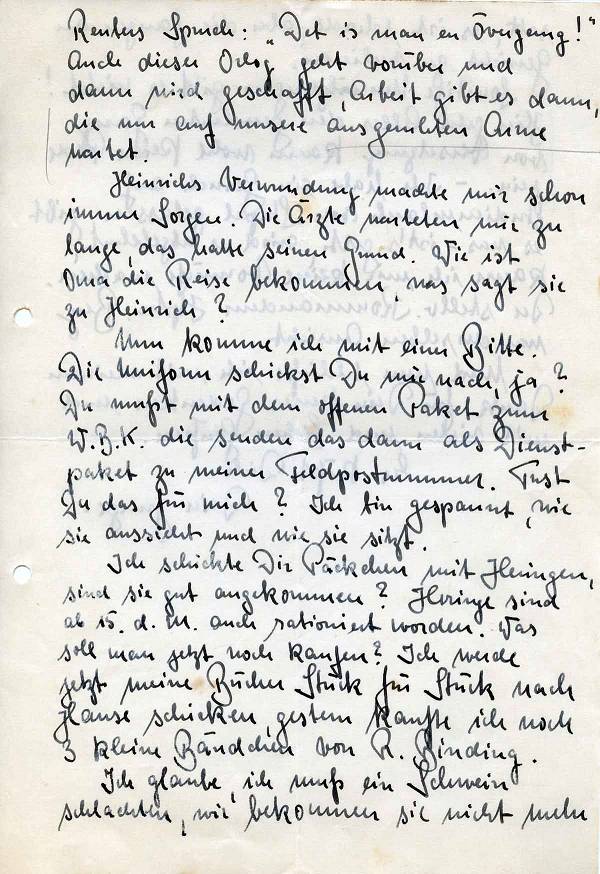 Reuters Spruch: „Det is man en Övergang!“
Auch dieser Orlog geht vorüber und
dann wird geschafft, Arbeit gibt es dann,
die nur auf unsere ausgeruhten Arme
wartet.
Heinrichs Verwundung machte mir schon
immer Sorgen. Die Ärzte warteten mir zu
lange, das hatte seinen Grund. Wie ist
Oma die Reise bekommen, was sagt sie
zu Heinrich?
Nun komme ich mit einer Bitte.
Die Uniform schickst Du mir nach, ja?
Du mußt mit dem offenen Paket zum
W.B.K. die senden das dann als Dienst-
paket zu meiner Feldpostnummer. Tust
Du das für mich? Ich bin gespannt, wie
sie aussieht und wie sie sitzt.
Ich schickte Dir Päckchen mit Heringen,
sind sie gut angekommen? Heringe sind
ab 15. d. M. auch rationiert worden. Was
soll man jetzt noch kaufen? Ich werde
jetzt meine Bücher Stück für Stück nach
Hause schicken, gestern kaufte ich noch
3 kleine Bändchen von R. Binding.
Ich glaube, ich muß ein Schwein
schlachten, wir bekommen sie nicht mehr